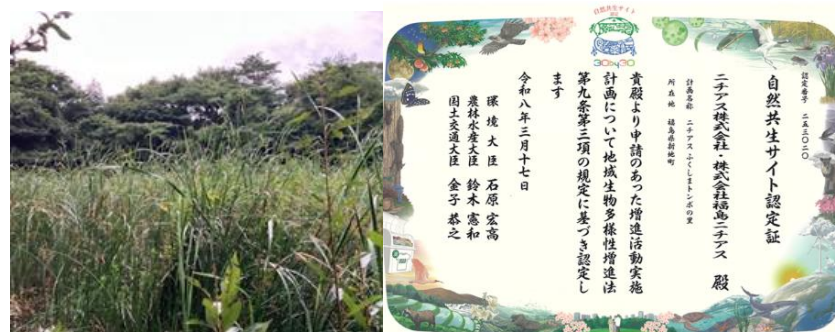 自然共生サイト
認定
30by30
認定番号 二五三〇二〇
自然共生サイト認定証
ニチアス株式会社・株式会社福島ニチアス 殿
計画名称 ニチアスふくしまトンボの里
所在地 福島県新地町
貴殿より申請のあった増進活動実施
計画について地域生物多様性増進法
第九条第三項の規定に基づき認定し
ます
令和八年三月十七日
環境大臣 石原宏高
農林水産大臣 鈴木憲和
国土交通大臣 金子恭之